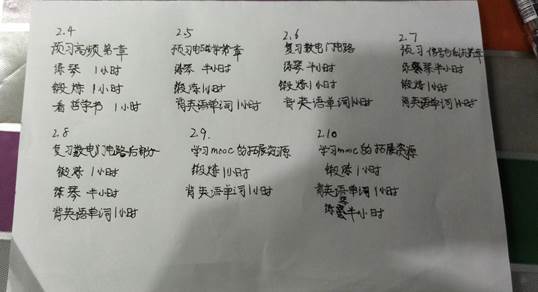 2.4
预习高频第一章
练琴 1小时
锻炼 1小时
看哲学书 1小时
2.5
预习电磁学第一章
练琴 半小时
锻炼1小时
背英语单词1小时
2.6
复习数电门电路
练琴 半小时
锻炼1小时
背英语单词1小时
2.7
预习信号与系统第一章
练琴半小时
锻炼1小时
背英语单词1小时
2.8
复习数电门电路后部分
锻炼 1小时
练琴 半小时
背英语单词1小时
2.9.
学习mooc的拓展资源
锻炼1小时
背英语单词1小时
2.10
学习mooc的拓展资源
锻炼1小时
背英语单词1小时
练琴半小时